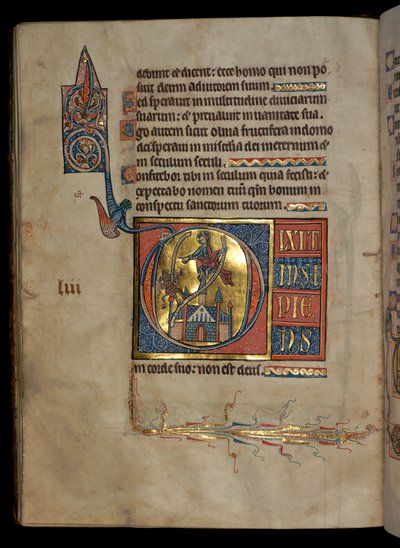 debunt et dicent: ecce homo qui non po
suit deum adiutorem suum.
Sed speravit in multitudine diviciarum
suarum: et prevaluit in vanitate sua.
Ego autem sicut oliva fructifera in domo
dei speravi in mīa dei in eternum et
in seculum seculi.
Confitebor tibi in seculum quia fecisti: et
expectabo nomen tuū qm̄ bonum in
conspectu sanctorum tuorum.
liii
DIXIT
INSI
PIE
NS
in corde suo: non est deus.